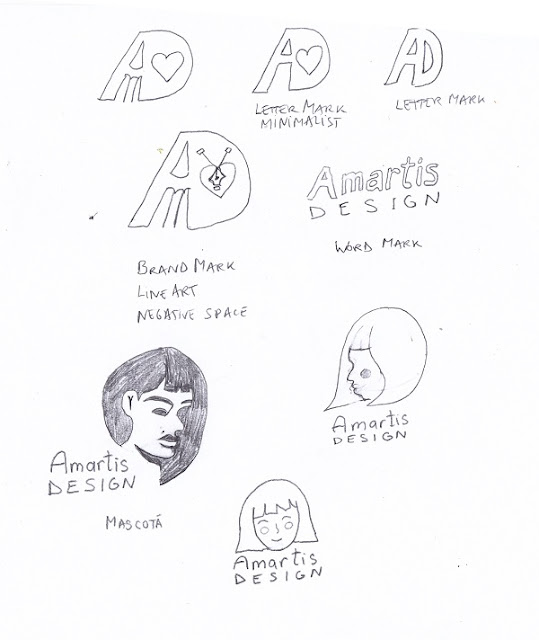 AmD
AD
AD
LETTER MARK
MINIMALIST
LETTER MARK
AmD
Amartis
DESIGN
WORD MARK
BRAND MARK
LINE ART
NEGATIVE SPACE
Amartis
DESIGN
Amartis
DESIGN
MASCOTÁ
Amartis
DESIGN